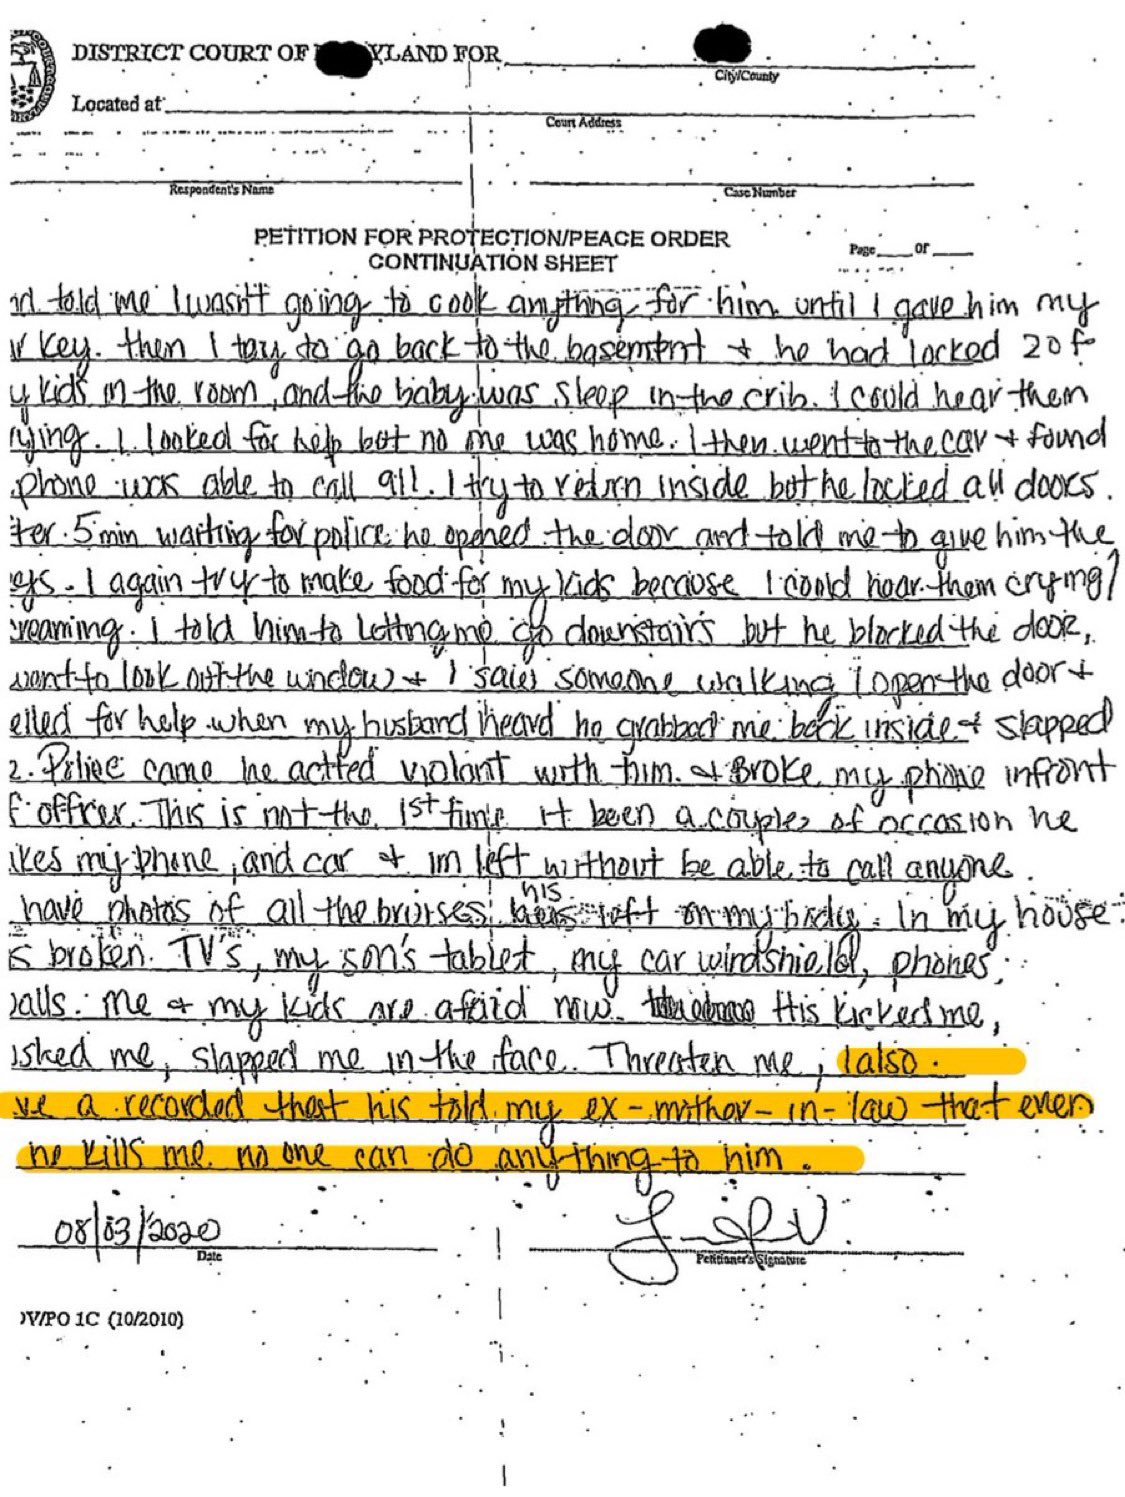 DISTRICT COURT OF YLAND FOR
City/County
Located at
Court Address
Respondent's Name
Case Number
PETITION FOR PROTECTION/PEACE ORDER
Page of
CONTINUATION SHEET
nd told me I wasn't going to cook anything for him until I gave him my
r key. then I tory to go back to the basemtnt + he had locked 2 of
y kids in the room, and the baby was sleep in the crib. I could hear them
rying. I looked for help but no one was home. I then went to the car + found
phone was able to call 911. I try to return inside but he locked all doors.
ter 5 min waiting for police he opened the door and told me to give him the
eys. I again try to make food for my kids because I could hear them crying/
reaming. I told him to letting me go downstairs but he blocked the door,
went to look out the window + I saw someone walking I open the door +
elled for help when my husband heard he grabbed me back inside + slapped
e. Police came he actted violant with him. + BROKE my phone infront
f officer. This is not the 1st time it been a couples of occasion he
akes my phone, and car + im left without be able to call anyone.
have photos of all the brurses his left on my body. In my house
s broken. TV's, my son's tablet, my car windshield, phones,
alls. Me + my kids are afraid now. His kicked me,
sked me, slapped me in the face. Threaten me, I also
ve a recorded that his told my ex-mother-in-law that even
he kills me no one can do anything to him.
08/03/2020
Date
Petitioner's Signature
DV/PO 1C (10/2010)